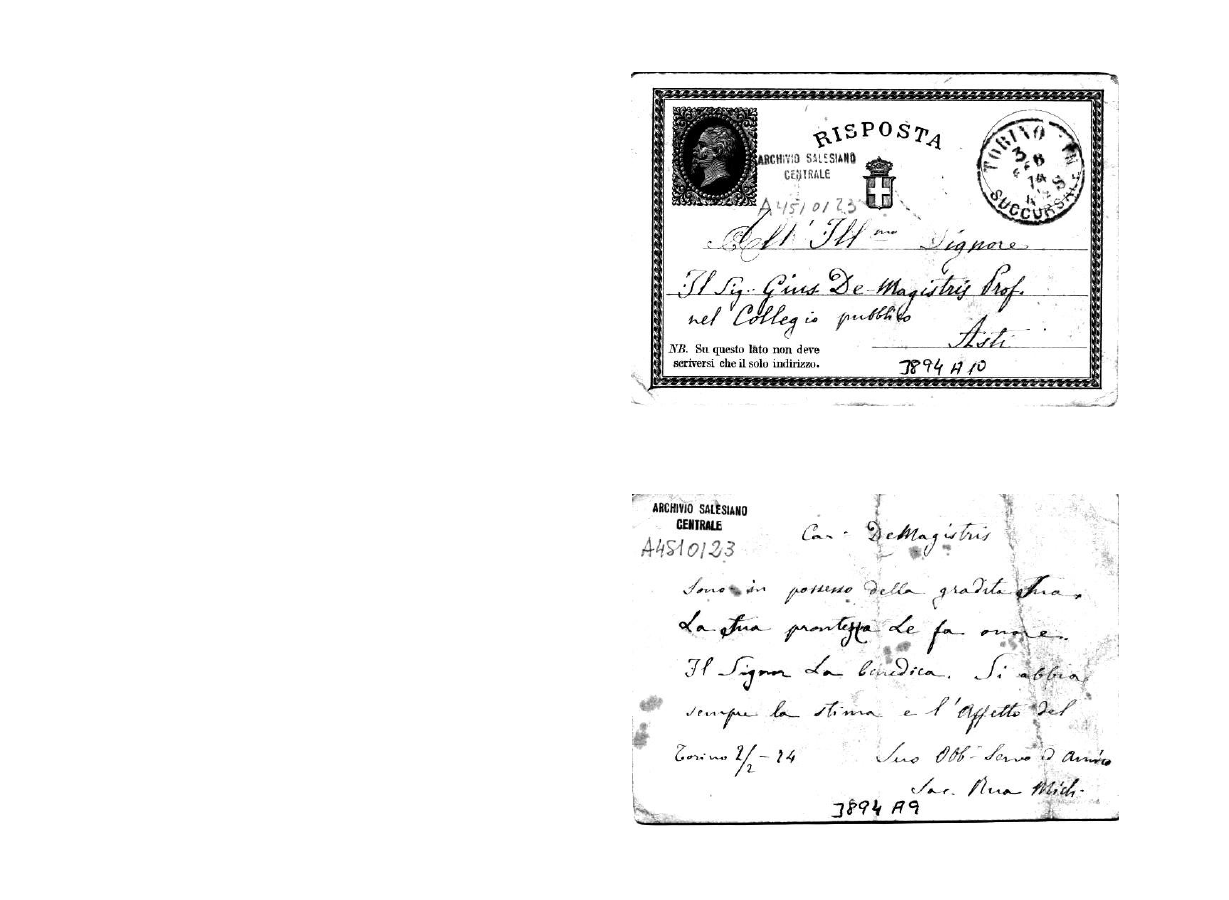 RISPOSTA
ARCHIVIO SALESIANO
CENTRALE
A4510123
TORINO
3
FEB
74
SUCCURSALE
All' Ill.mo Signore
Il Sig. Gius De-Magistris Prof.
nel Collegio pubblico
Asti
NB. Su questo lato non deve
scriversi che il solo indirizzo.
3894 A 10
ARCHIVIO SALESIANO
CENTRALE
A4510123
Car. DeMagistris
Sono in possesso della gradita Sua.
La Sua prontezza Le fa onore.
Il Signor La benedica. Si abbia
sempre la stima e l'Affetto del
Torino 2/2 - 74
Suo Obb- Servo ed Amico
Sac. Rua Mich.
3894 A9